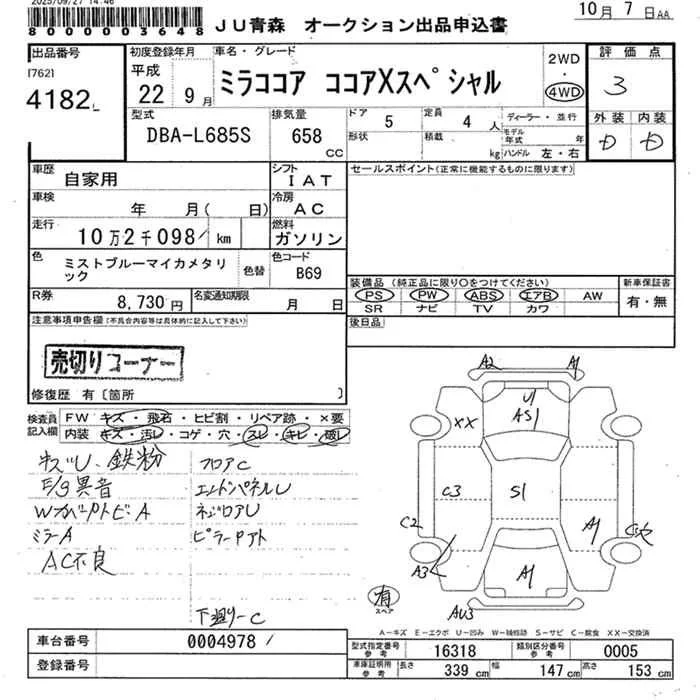 2025/09/27 14:46
8000003648
JU青森 オークション出品申込書
10月7日AA
出品番号
[762]
4182
初度登録年月
平成
22 9月
車名・グレード
ミラココア ココアXスペシャル
2WD
・
4WD
評価点
3
外装 内装
D D
型式
DBA-L685S
排気量
658
CC
ドア
5
定員
4人
形状
積載
kg
ディーラー・並行
モデル年式 年
ハンドル 左・右
車歴
自家用
シフト
IAT
車検
年 月( 日)
冷房
AC
走行
10万2千098 km
燃料
ガソリン
色
ミストブルーマイカメタリック
色替
色コード
B69
R券
8,730円
名変通知期限
月 日
セールスポイント(正常に機能するものに限ります)
装備品 (純正品に限り○をつけてください)
PS PW ABS エアB AW
SR ナビ TV カワ
新車保証書
有・無
後日品
注意事項申告欄(不具合内容等は具体的に記入して下さい)
売切りコーナー
修復歴 有〔箇所 〕
検査員記入欄
FW キズ・飛石・ヒビ割・リペア跡・×要
内装 キズ・汚レ・コゲ・穴・スレ・キレ・破レ
キズU、鉄粉
F/S異音
Wカバアトビ A
ミラーA
AC不良
フロアC
エンドパネルU
ネジロアU
ピラーPアト
下廻りーC
A2 A1
U1
AS1
XX
C3
S1
C2
A1
A3
A1
AU3
有
スペア
A-キズ E-エクボ U-凹み W-補修跡 S-サビ C-腐食 XX-交換済
車台番号
0004978
登録番号
型式指定番号
参考
16318
類別区分番号
参考
0005
車庫証明用
参考
長さ
339 cm
幅
147 cm
高さ
153 cm